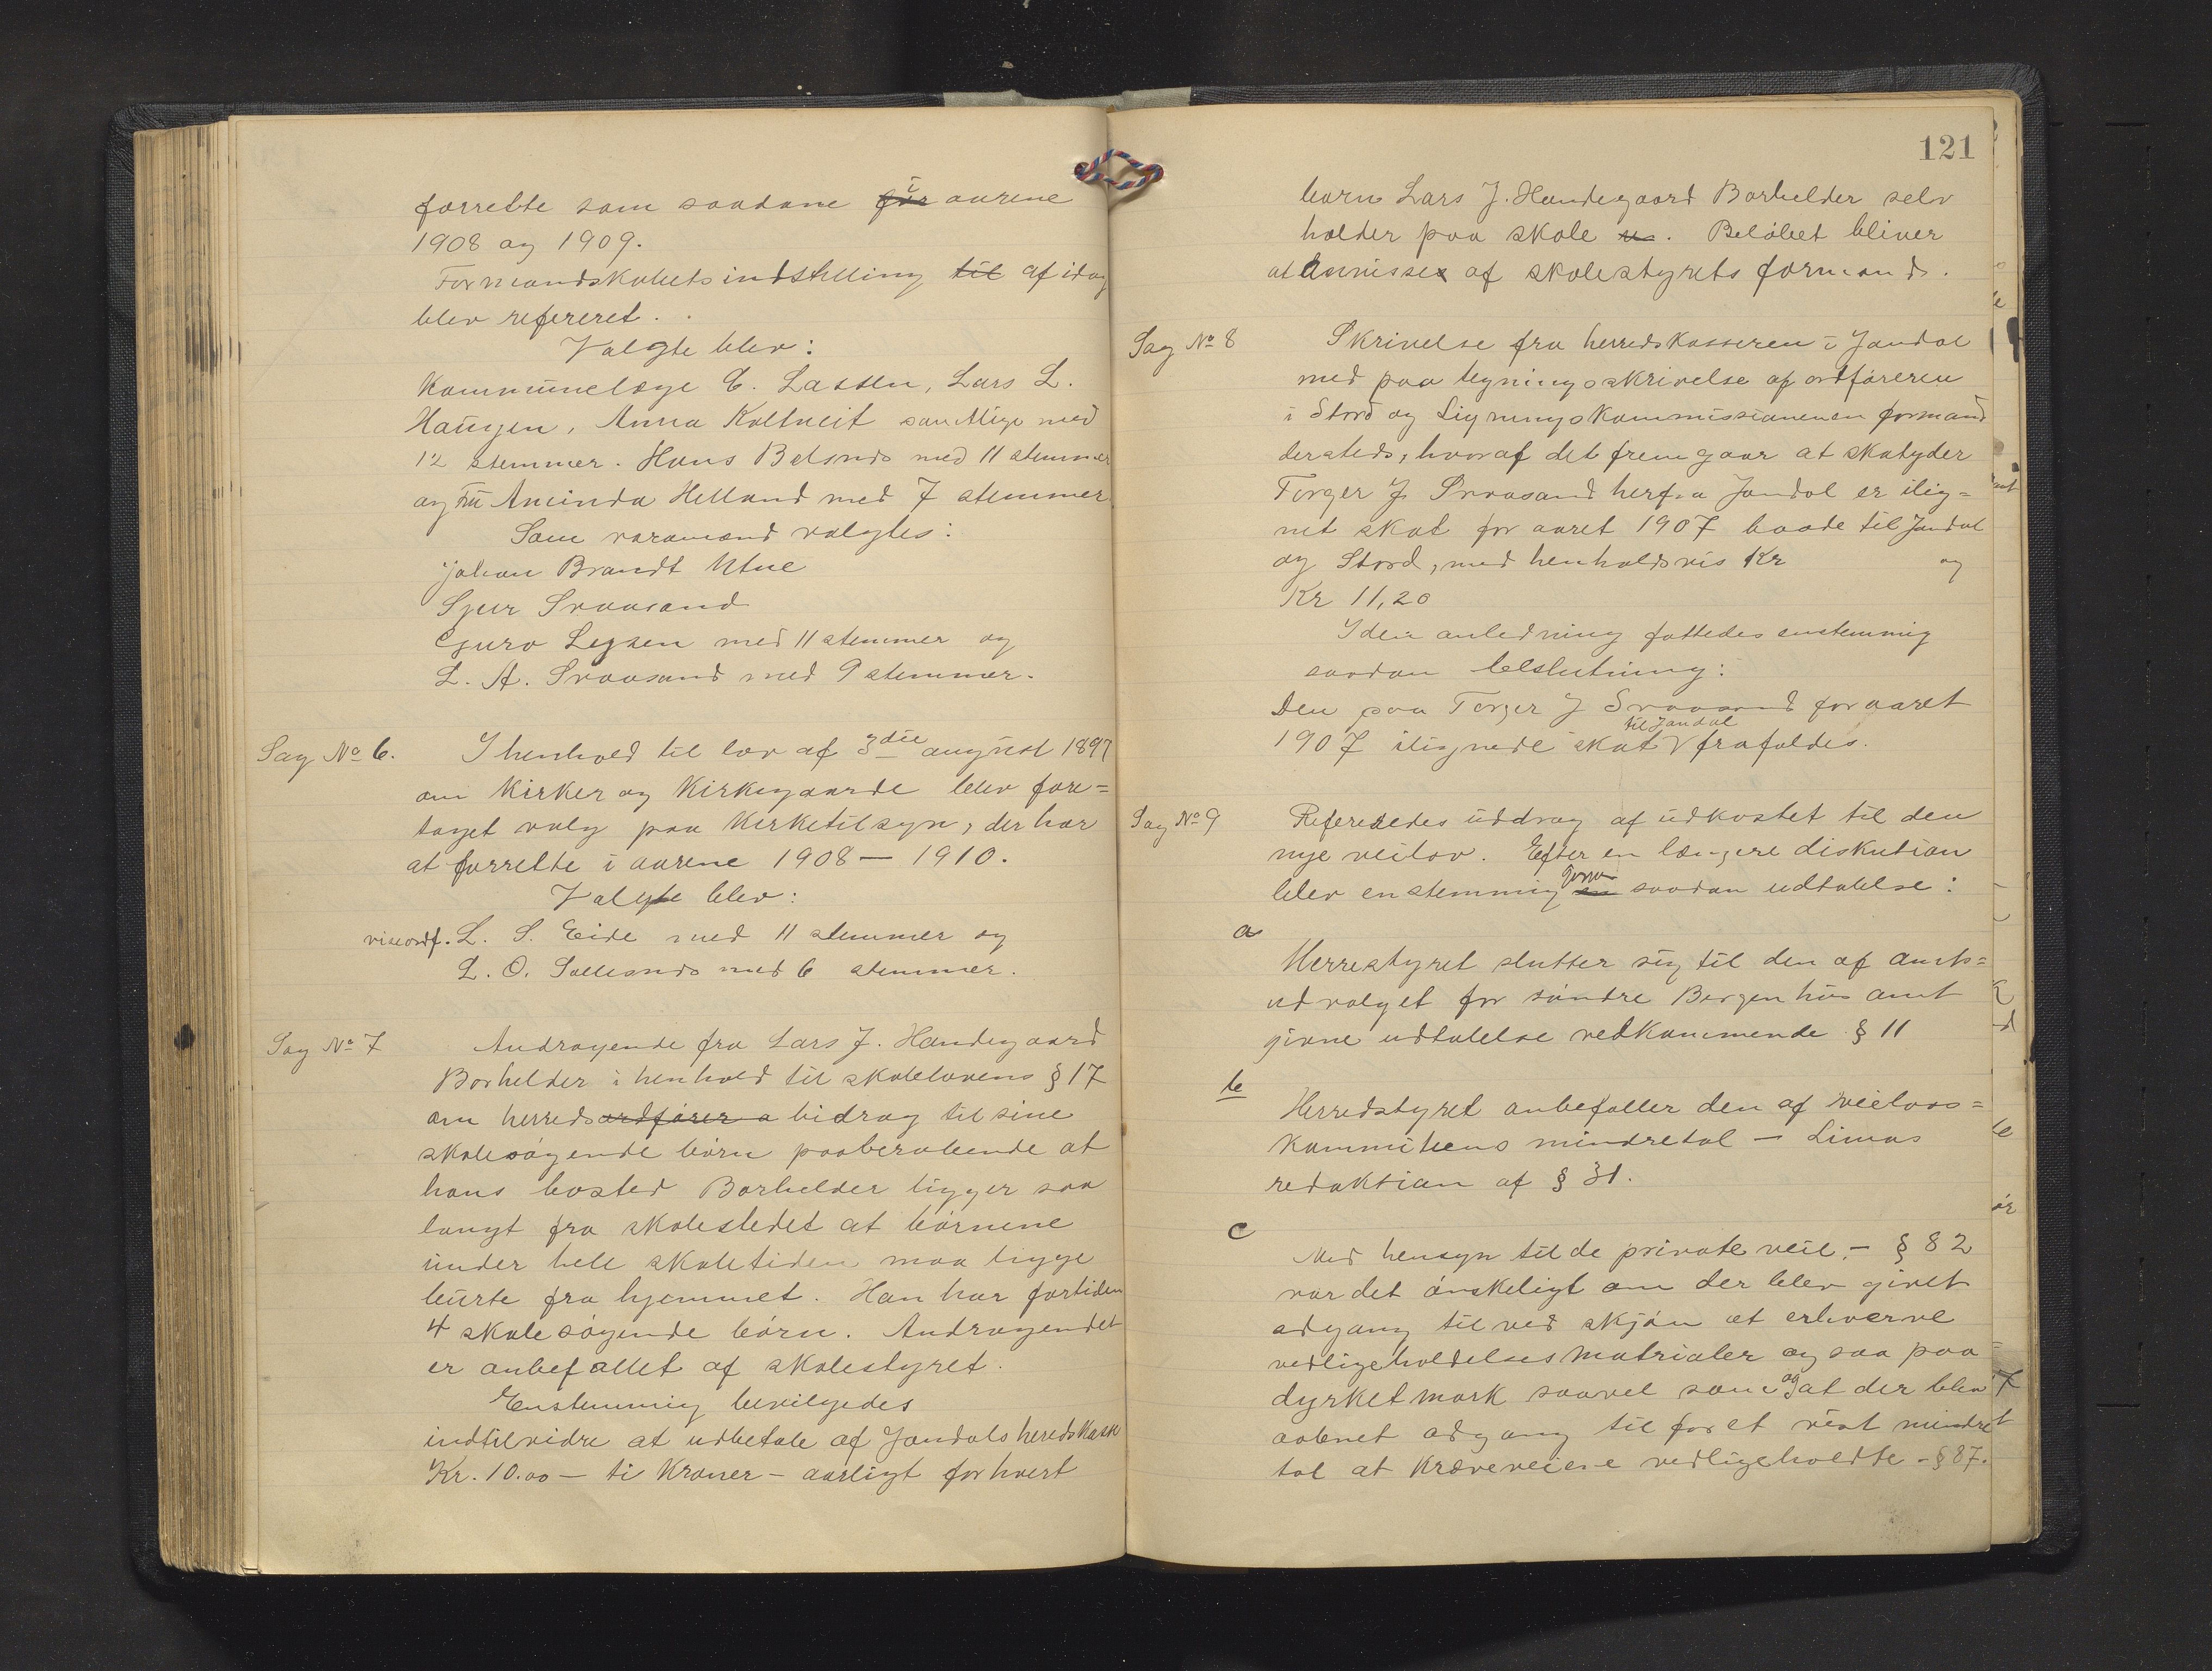 forrette som saadane før i aarene
1908 og 1909.
Formandskabets indstilling til af idag
blev refereret.
Valgte blev:
Kommunelæge C. Lassen, Lars L.
Haugen, Anna Koltveit samtlige med
12 stemmer. Hans Belsnes med 11 stemmer
og Fru Aminda Helland med 7 stemmer
Som varamænd valgtes:
Johan Brandt Utne
Sjur Svaasand
Guro Legsen med 11 stemmer og
L. A. Svaasand med 9 stemmer.
Sag No 6. I henhold til lov af 3die august 1897
om Kirker og Kirkegaarde blev fore=
taget valg paa Kirketilsyn, der har
at forrette i aarene 1908 — 1910.
Valgte blev:
viseordf. L. S. Eide med 11 stemmer og
L. O. Sollesnes med 6 stemmer.
Sag No 7 Andragende fra Lars J. Handegaard
Borhelder i henhold til skolelovens § 17
om herredsordfører a bidrag til sine
skolesøgende børn paaberabende at
hans bosted Borhelder ligger saa
langt fra skolestedet at børnene
under hele skoletiden maa ligge
burte fra hjemmet. Han har fortiden
4 skolesøgende børn. Andragendet
er anbefallet af skolestyret.
Enstemmig bevilgedes
indtilvidre at udbetale af Jondals heredskasse
Kr. 10.00 — ti Kroner — aarligt for hvert
121
barn Lars J. Handegaard Borhelder selv
holder paa skole. Beløbet bliver
at anvises af skolestyrets formand.
Sag No 8 Skrivelse fra herredskasseren i Jondal
med paategningsskrivelse af ordføreren
i Stord og Ligningskommissionenen formand
dersteds, hvoraf det fremgaar at skatyder
Torger J. Svaasand herfra Jondal er ilig=
net skat for aaret 1907 baade til Jondal
og Stord, med henholdsvis Kr og
Kr 11,20
I den anledning fattedes enstemmig
saadan belslutning:
Den paa Torger J Svaasand for aaret
1907 ilignede skat til Jondal frafaldes.
Sag No 9 Refereredes uddrag af udkastet til den
nye veilov. Efter en længere diskution
blev enstemmig en saadan udtalelse:
a
Herrestyret slutter sig til den af amts=
udvalget for søndre Bergenhus amt
givne udtalelse vedkommende § 11
b
Herredstyret anbefaller den af veilovs=
kommiteens mindretal — Limas
redaktion af § 31.
c
Med hensyn til de private veie — § 82
var det ønskeligt om der blev givet
adgang til ved skjøn at erhverve
vedligeholdelsesmatrialer ogsaa paa
dyrket mark saavel som og at der blev
aabnet adgang til for et vist mindre
tal at kræve veiene vedligeholdte - § 87.